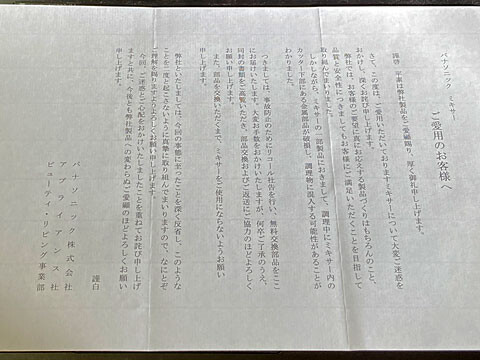 パナソニック ミキサー
ご愛用のお客様へ
謹啓 平素は弊社製品をご愛顧賜り、厚く御礼申し上げます。
さて、この度は、ご愛用いただいておりますミキサーについて大変ご迷惑を
おかけし、深くお詫び申し上げます。
弊社では、お客様のご要望に真にお応えする製品づくりはもちろんのこと、
品質と安全性につきましてもお客様にご満足いただくことを目指して
取り組んでまいりました。
しかしながら、ミキサーの一部製品におきまして、調理中にミキサー内の
カッター下部にある金属部品が破損し、調理物に混入する可能性があることが
わかりました。
つきましては、事故防止のためにリコール社告を行い、無料交換部品をここ
にお届けいたします。大変お手数をおかけいたしますが、何卒ご了承のうえ、
同封の書類をご高覧いただき、部品交換およびご返送にご協力のほどよろしく
お願い申し上げます。
また、部品を交換いただくまで、ミキサーをご使用にならないようお願い
申し上げます。
弊社といたしましては、今回の事態に至ったことを深く反省し、このような
ことを二度と起こさないように真摯に取り組んでまいりますので、なにとぞ
ご理解を賜りますようよろしくお願い申し上げます。
今回、ご迷惑とご心配をおかけいたしましたことを重ねてお詫び申し上げ
ますと共に、今後とも弊社製品への変わらぬご愛顧のほどよろしくお願い
申し上げます。
謹白
パナソニック株式会社
アプライアンス社
ビューティ・リビング事業部